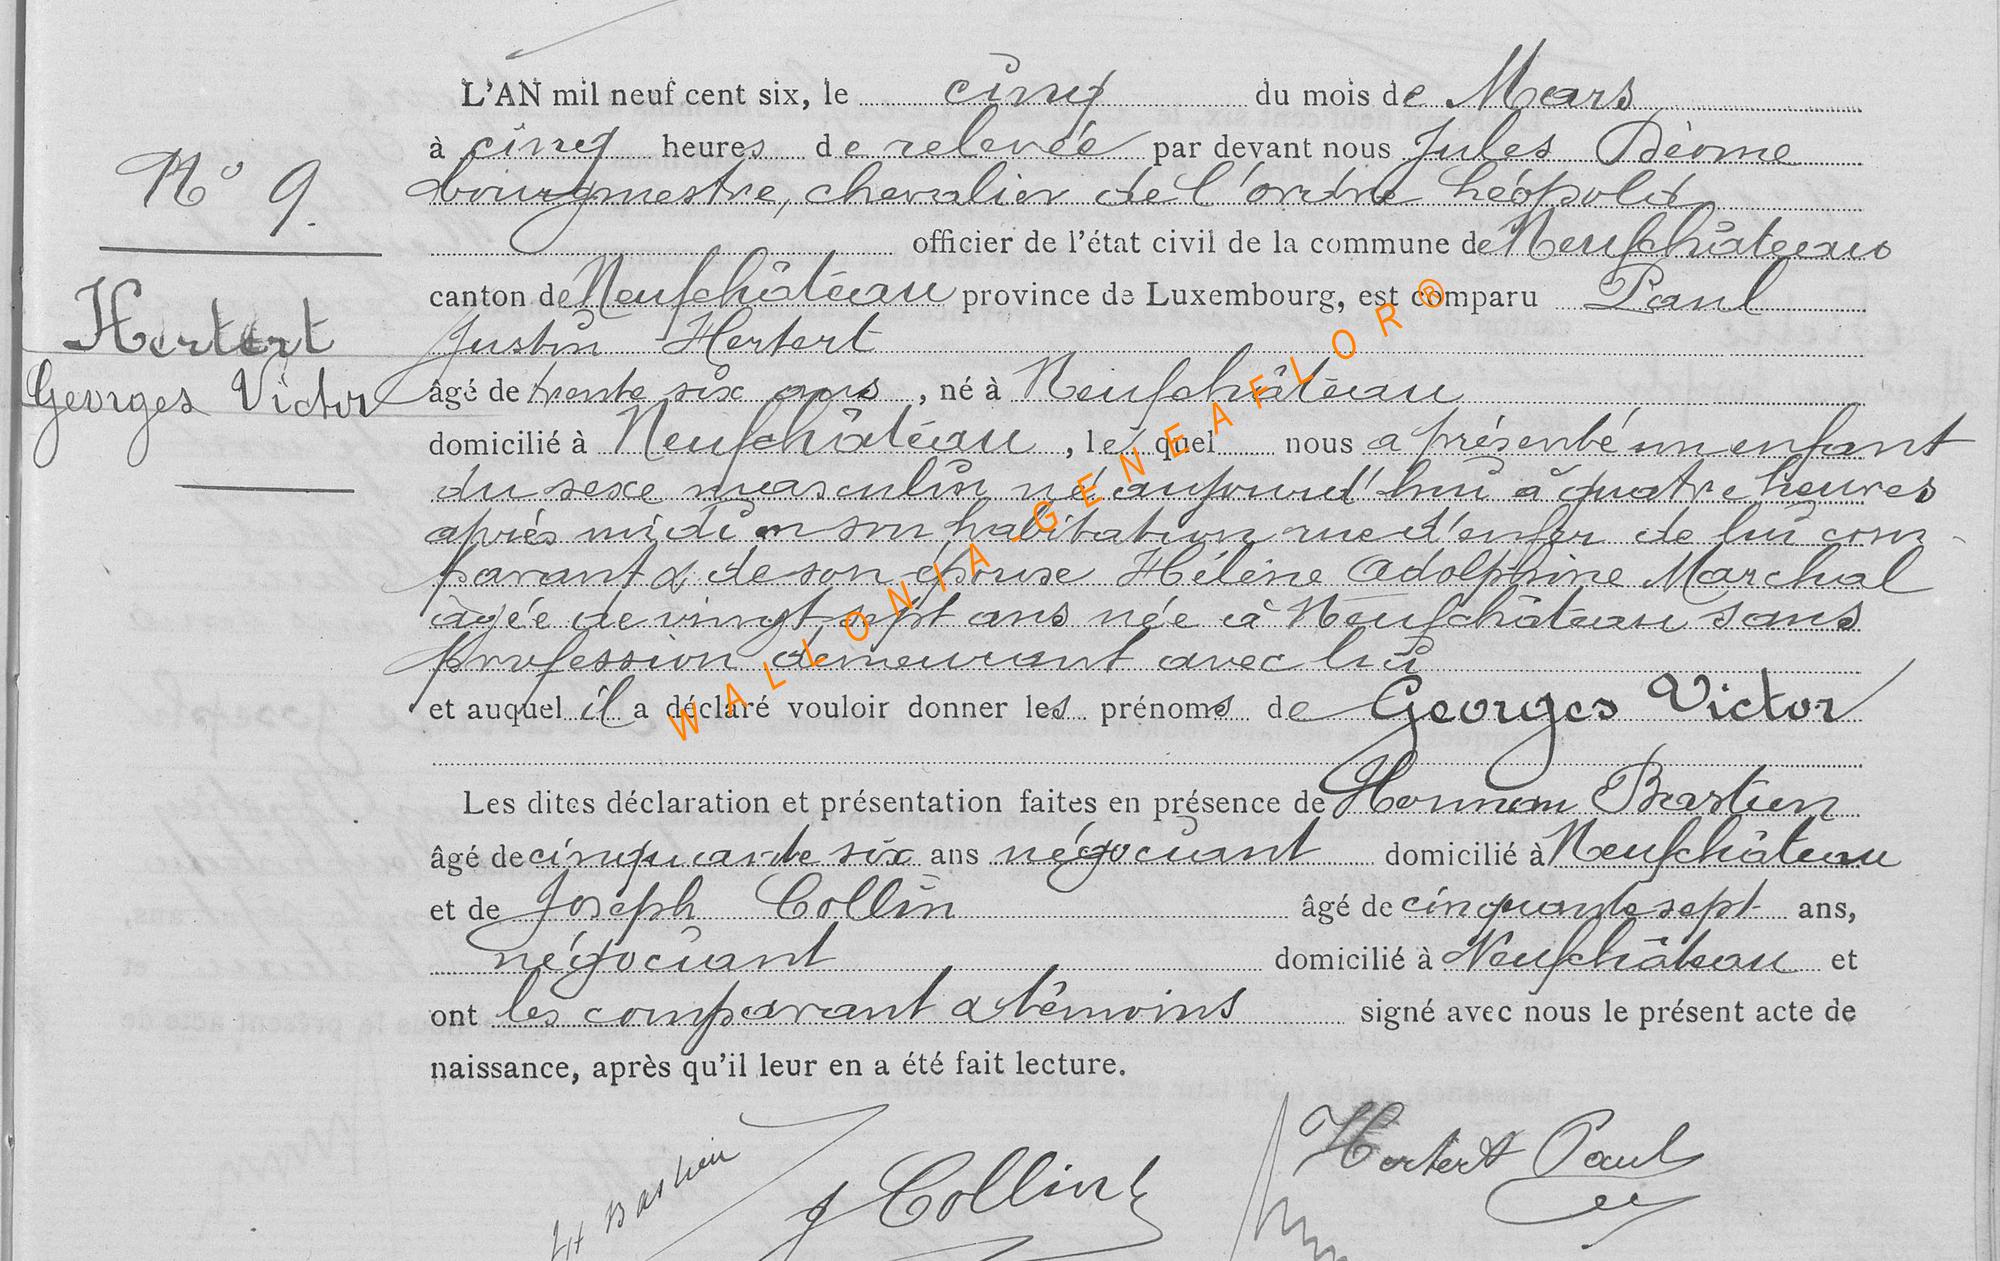 N° 9.
Hertert
Georges Victor
L'AN mil neuf cent six, le cinq du mois de Mars
à cinq heures de relevée par devant nous Jules
bourgmestre, chevalier de l'ordre Léopold
officier de l'état civil de la commune de Neufchâteau
canton de Neufchâteau province de Luxembourg, est comparu Paul
Justin Hertert
âgé de trente six ans, né à Neufchâteau
domicilié à Neufchâteau, lequel nous a présenté un enfant
du sexe masculin né aujourd'hui à quatre heures
après midi en son habitation rue d'enfer de lui com-
parant & de son épouse Hélène Adolphine Marchal
âgée de vingt sept ans née à Neufchâteau sans
profession demeurant avec lui
et auquel il a déclaré vouloir donner les prénoms de Georges Victor
Les dites déclaration et présentation faites en présence de Bastien
âgé de cinquante six ans négociant domicilié à Neufchâteau
et de Joseph Collin âgé de cinquante sept ans,
négociant domicilié à Neufchâteau et
ont les comparant & témoins signé avec nous le présent acte de
naissance, après qu'il leur en a été fait lecture.
H Bastien
J Collin
Hertert Paul
WALLONIA-GENEAFLOR®